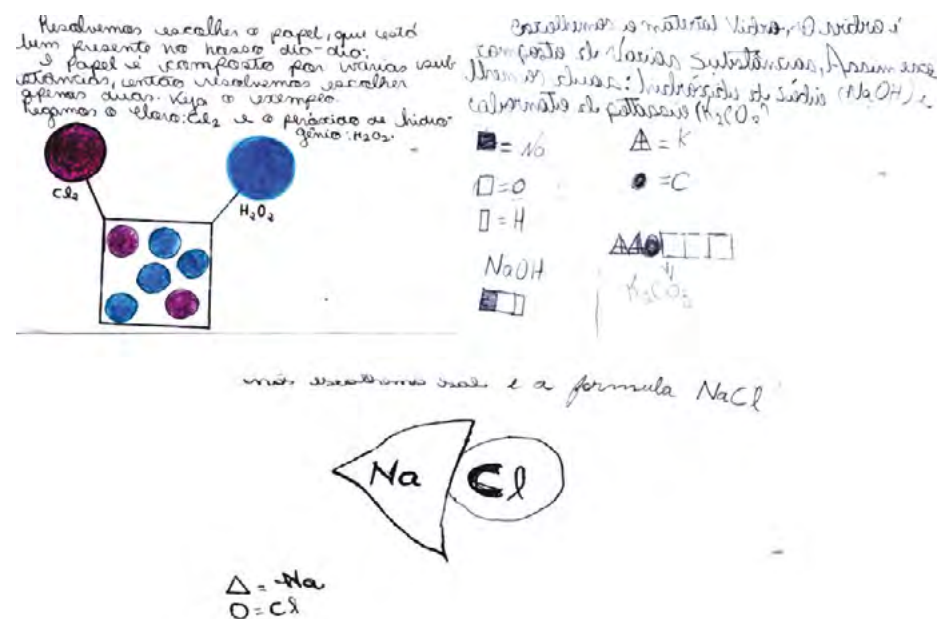 Resolvemos escolher o papel, que está
bem presente no nosso dia-dia.
O papel é composto por várias sub
stâncias, então resolvemos escolher
apenas duas. Veja o exemplo.
Pegamos o cloro: Cl₂ e o peróxido de hidro
gênio: H₂O₂.
Cl₂
H₂O₂
Escolhemos o material vidro. O vidro é
composto de várias substâncias. Assim
de sódio (NaOH) e
carbonato de potássio (K₂CO₃)
= Na
= O
= H
NaOH
= K
= C
K₂CO₃
nós escolhemos sal e a formula NaCl
Na Cl
△ = Na
O = Cl